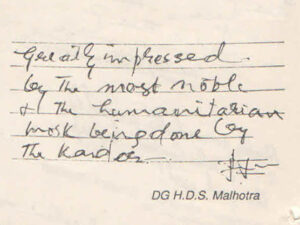 Greatly impressed
by The most noble
& The humanitarian
work being done by
The
DG H.D.S. Malhotra